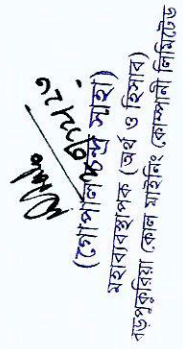 (গোপাল চন্দ্র সাহা)
মহাব্যবস্থাপক (অর্থ ও হিসাব)
বড়পুকুরিয়া কোল মাইনিং কোম্পানী লিমিটেড